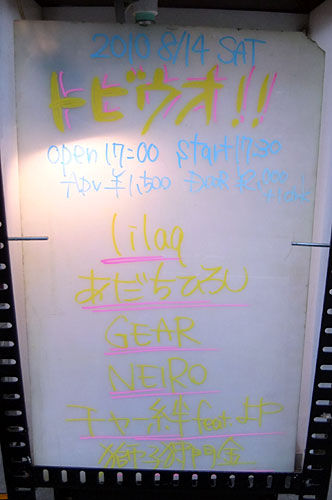 2010 8/14 SAT
トビウオ!!
open 17:00 Start 17:30
Adv ¥1,500 Door
lilaq
あだちひろし
GEAR
NEIRO
feat.